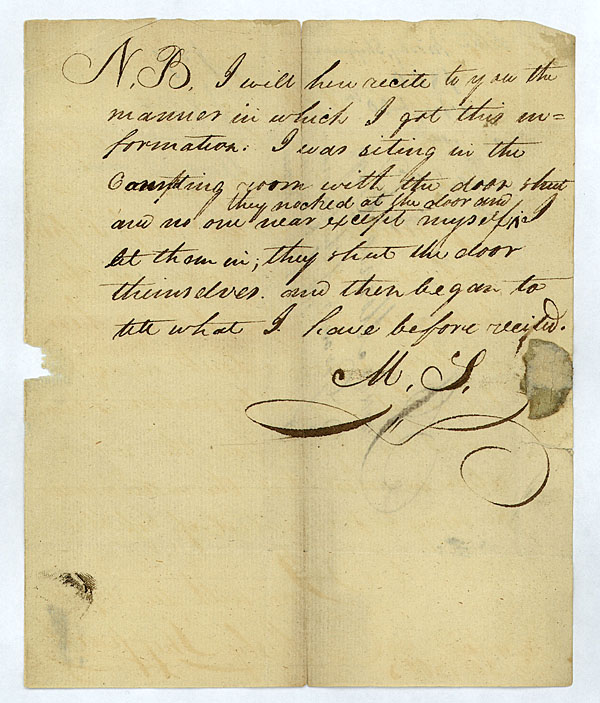 N. B. I will here recite to you the
manner in which I got this in=
formation. I was siting in the
Compting room with the door shut
they nocked at the door and
and no one near except myself, I
let them in; they shut the door
themselves. and then began to
tell what I have before recited.
M. S.